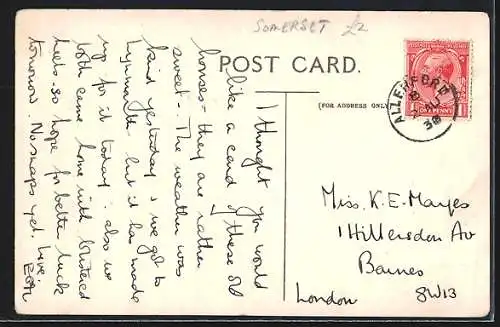 SOMERSET £2
POST CARD.
(FOR ADDRESS ONLY)
ALLERFORD
ONE PENNY
I thought you would
like a card of these old
houses - they are rather
sweet -. The weather was
kind yesterday & we got to
Lynmouth but it has made
up for it today: also we
both came home with blistered
heels. so hope for better luck
tomorrow. No snaps yet. Love
Miss. K. E. Mayes
1 Hillersdon Av
Barnes
London SW13